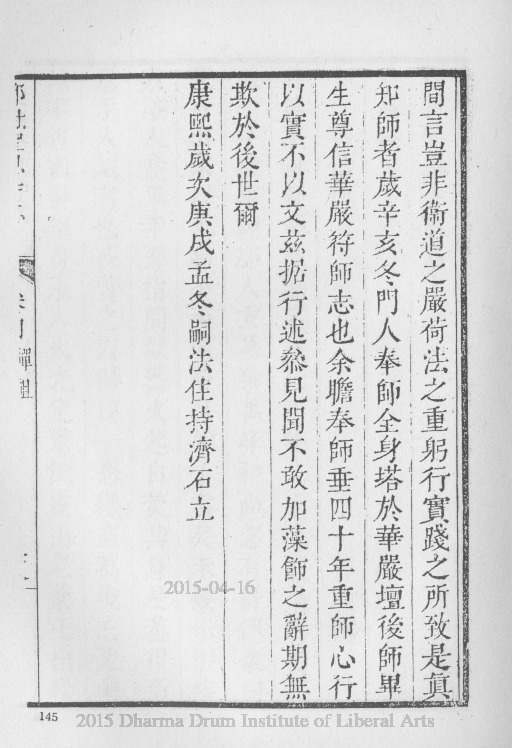 間言豈非衞道之嚴荷法之重躬行實踐之所致是眞
知師者歲辛亥冬門人奉師全身塔於華嚴壇後師畢
生尊信華嚴符師志也余瞻奉師垂四十年重師心行
以實不以文茲据行述叅見聞不敢加藻飾之辭期無
欺於後世爾
康熙歲次庚戌孟冬嗣法住持濟石立
2015-04-16
145
2015 Dharma Drum Institute of Liberal Arts